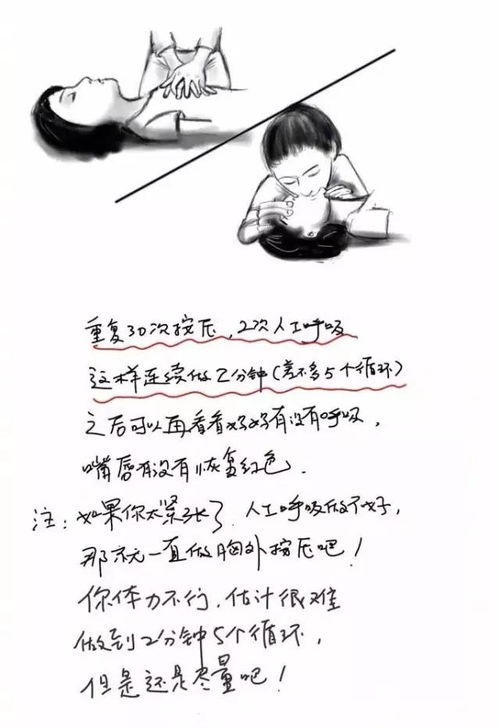 重复30次按压,2次人工呼吸
这样连续做2分钟(差不多5个循环)
之后可以再看看好好有没有呼吸,
嘴唇有没有恢复红色.
注:如果你太紧张了,人工呼吸做不好,
那就一直做胸外按压吧!
你体力不行,估计很难
做到2分钟5个循环,
但是还是尽量吧!